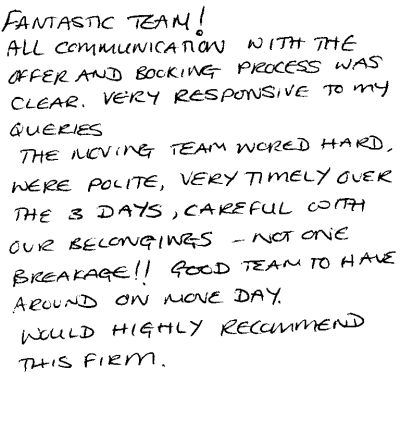 FANTASTIC TEAM!
ALL COMMUNICATION WITH THE
OFFER AND BOOKING PROCESS WAS
CLEAR. VERY RESPONSIVE TO MY
QUERIES
THE MOVING TEAM WORED HARD,
WERE POLITE, VERY TIMELY OVER
THE 3 DAYS, CAREFUL WITH
OUR BELONGINGS - NOT ONE
BREAKAGE!! GOOD TEAM TO HAVE
AROUND ON MOVE DAY.
WOULD HIGHLY RECOMMEND
THIS FIRM.